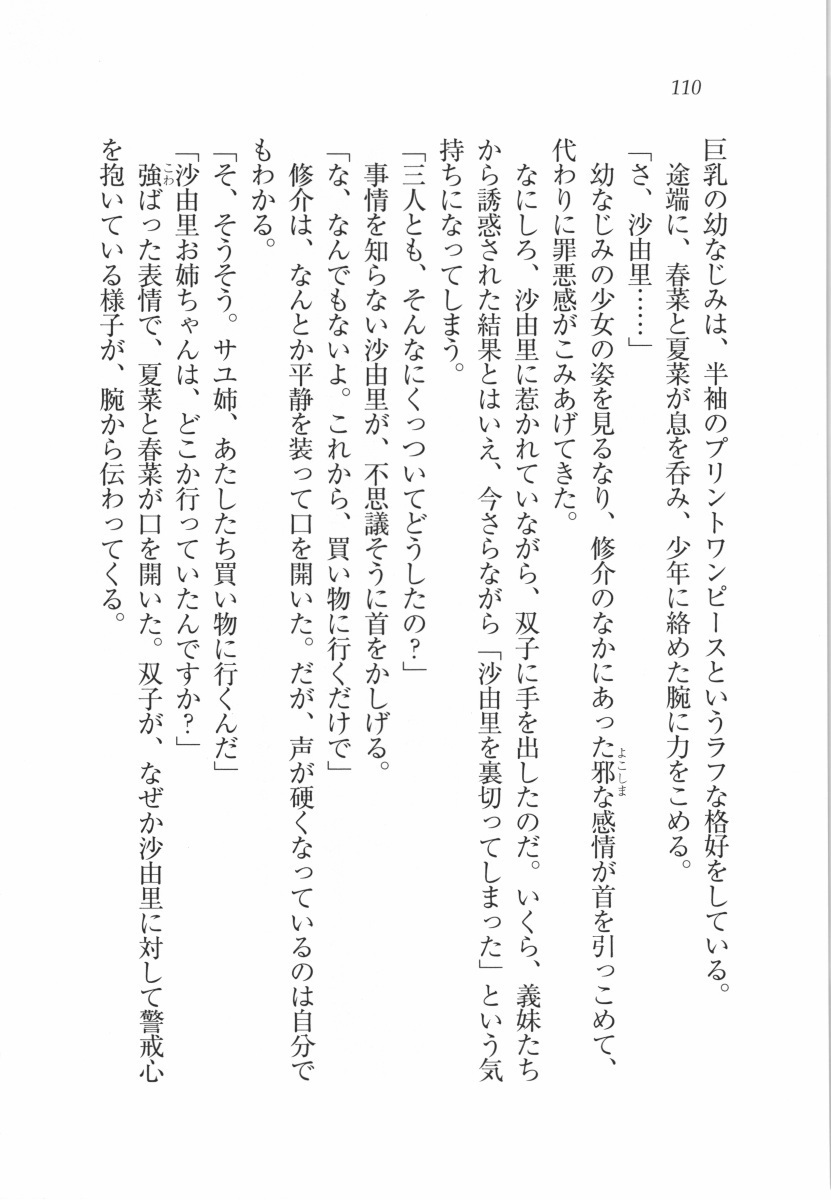 110
巨乳の幼なじみは、半袖のプリントワンピースというラフな格好をしている。
途端に、春菜と夏菜が息を呑み、少年に絡めた腕に力をこめる。
「さ、沙由里……」
幼なじみの少女の姿を見るなり、修介のなかにあった邪な感情が首を引っこめて、
よこしま
代わりに罪悪感がこみあげてきた。
なにしろ、沙由里に惹かれていながら、双子に手を出したのだ。いくら、義妹たち
から誘惑された結果とはいえ、今さらながら「沙由里を裏切ってしまった」という気
持ちになってしまう。
「三人とも、そんなにくっついてどうしたの？」
事情を知らない沙由里が、不思議そうに首をかしげる。
「な、なんでもないよ。これから、買い物に行くだけで」
修介は、なんとか平静を装って口を開いた。だが、声が硬くなっているのは自分で
もわかる。
「そ、そうそう。サユ姉、あたしたち買い物に行くんだ」
「沙由里お姉ちゃんは、どこか行っていたんですか？」
強ばった表情で、夏菜と春菜が口を開いた。双子が、なぜか沙由里に対して警戒心
こわ
を抱いている様子が、腕から伝わってくる。